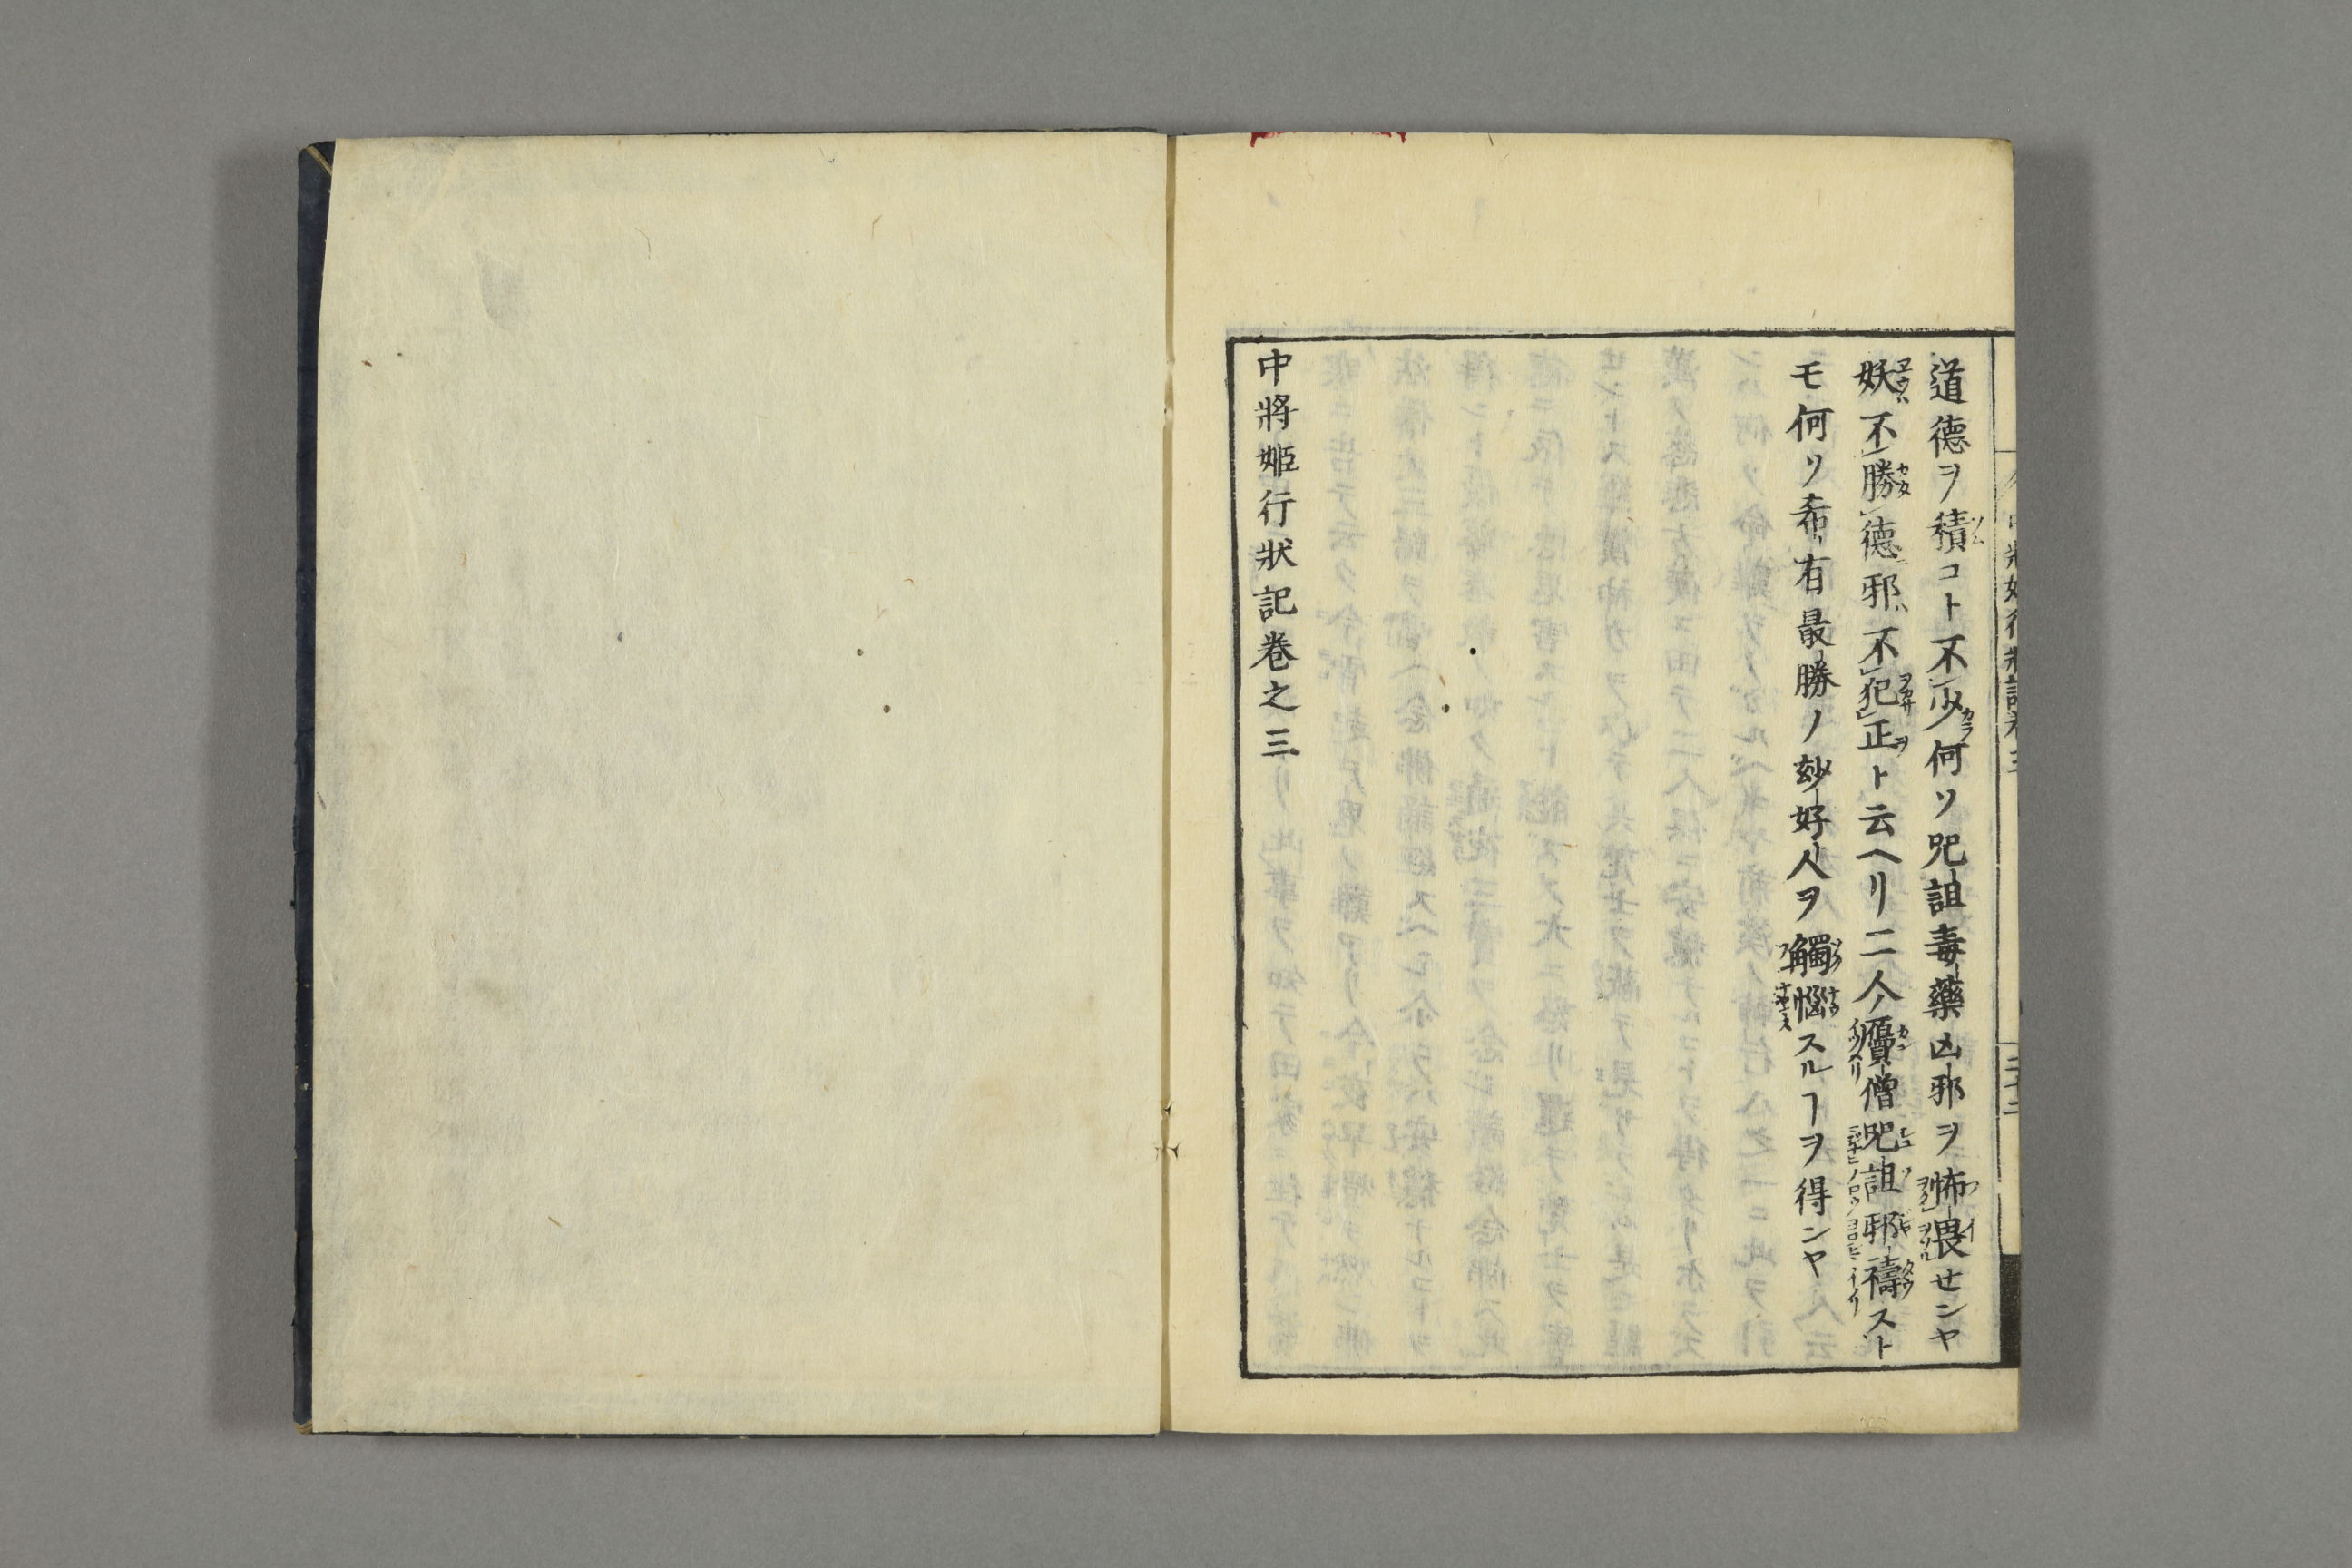 道德ヲ積コト不少何ソ咒詛毒藥凶邪ヲ怖畏センヤ
妖不勝德邪不犯正ト云ヘリ二人ノ贋僧咒詛邪禱スト
モ何ソ希有最勝ノ妙好人ヲ觸惱スルヿヲ得ンヤ
中將姬行狀記卷之三